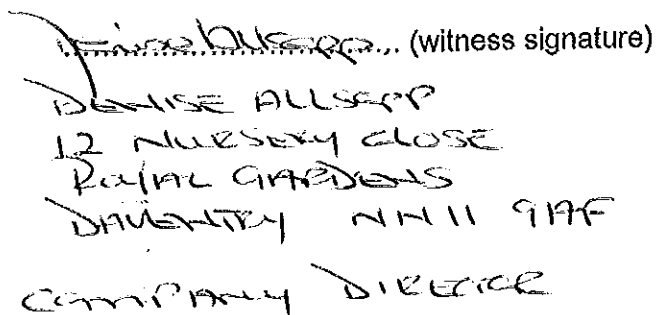 Denise Allsopp (witness signature)
DENISE ALLSOPP
12 NURSERY CLOSE
ROYAL GARDENS
DAVENTRY NN11 9AF
COMPANY DIRECTOR